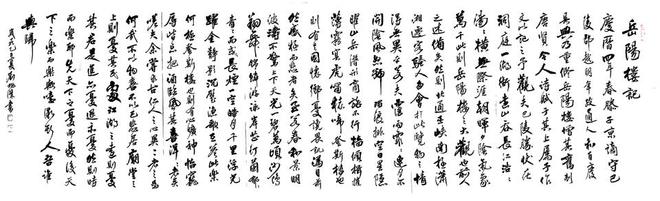 岳陽樓記
慶曆四年春滕子京謫守巴
陵郡越明年政通人和百廢
具興乃重修岳陽樓增其舊制
唐賢今人詩賦于其上屬予作
文以記之予觀夫巴陵勝狀在
洞庭一湖銜遠山吞長江浩浩
湯湯橫無際涯朝暉夕陰氣象
萬千此則岳陽樓之大觀也前人
之述備矣然則北通巫峽南極瀟
湘遷客騷人多會于此覽物之情
得無異乎若夫霪雨霏霏連月不
開陰風怒號濁浪排空日星隱
曜山岳潛形商旅不行檣傾楫摧
薄暮冥冥虎嘯猿啼登斯樓也
則有去國懷鄉憂讒畏譏滿目蕭
然感極而悲者矣至若春和景明
波瀾不驚上下天光一碧萬頃沙鷗
翔集錦鱗游泳岸芷汀蘭郁郁
青青而或長煙一空皓月千里浮光
躍金靜影沉璧漁歌互答此樂
何極登斯樓也則有心曠神怡寵
辱皆忘把酒臨風其喜洋洋者矣
嗟夫余嘗求古仁人之心或異二者之為
何哉不以物喜不以己悲居廟堂之
上則憂其民處江湖之遠則憂
其君是進亦憂退亦憂然則時
而樂耶先天下之憂而憂後天
下之樂而樂歟噫微斯人吾誰
與歸